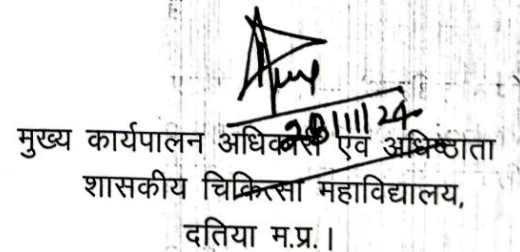 28/11/24
मुख्य कार्यपालन अधिकारी एवं अधिष्ठाता
शासकीय चिकित्सा महाविद्यालय,
दतिया म.प्र.।